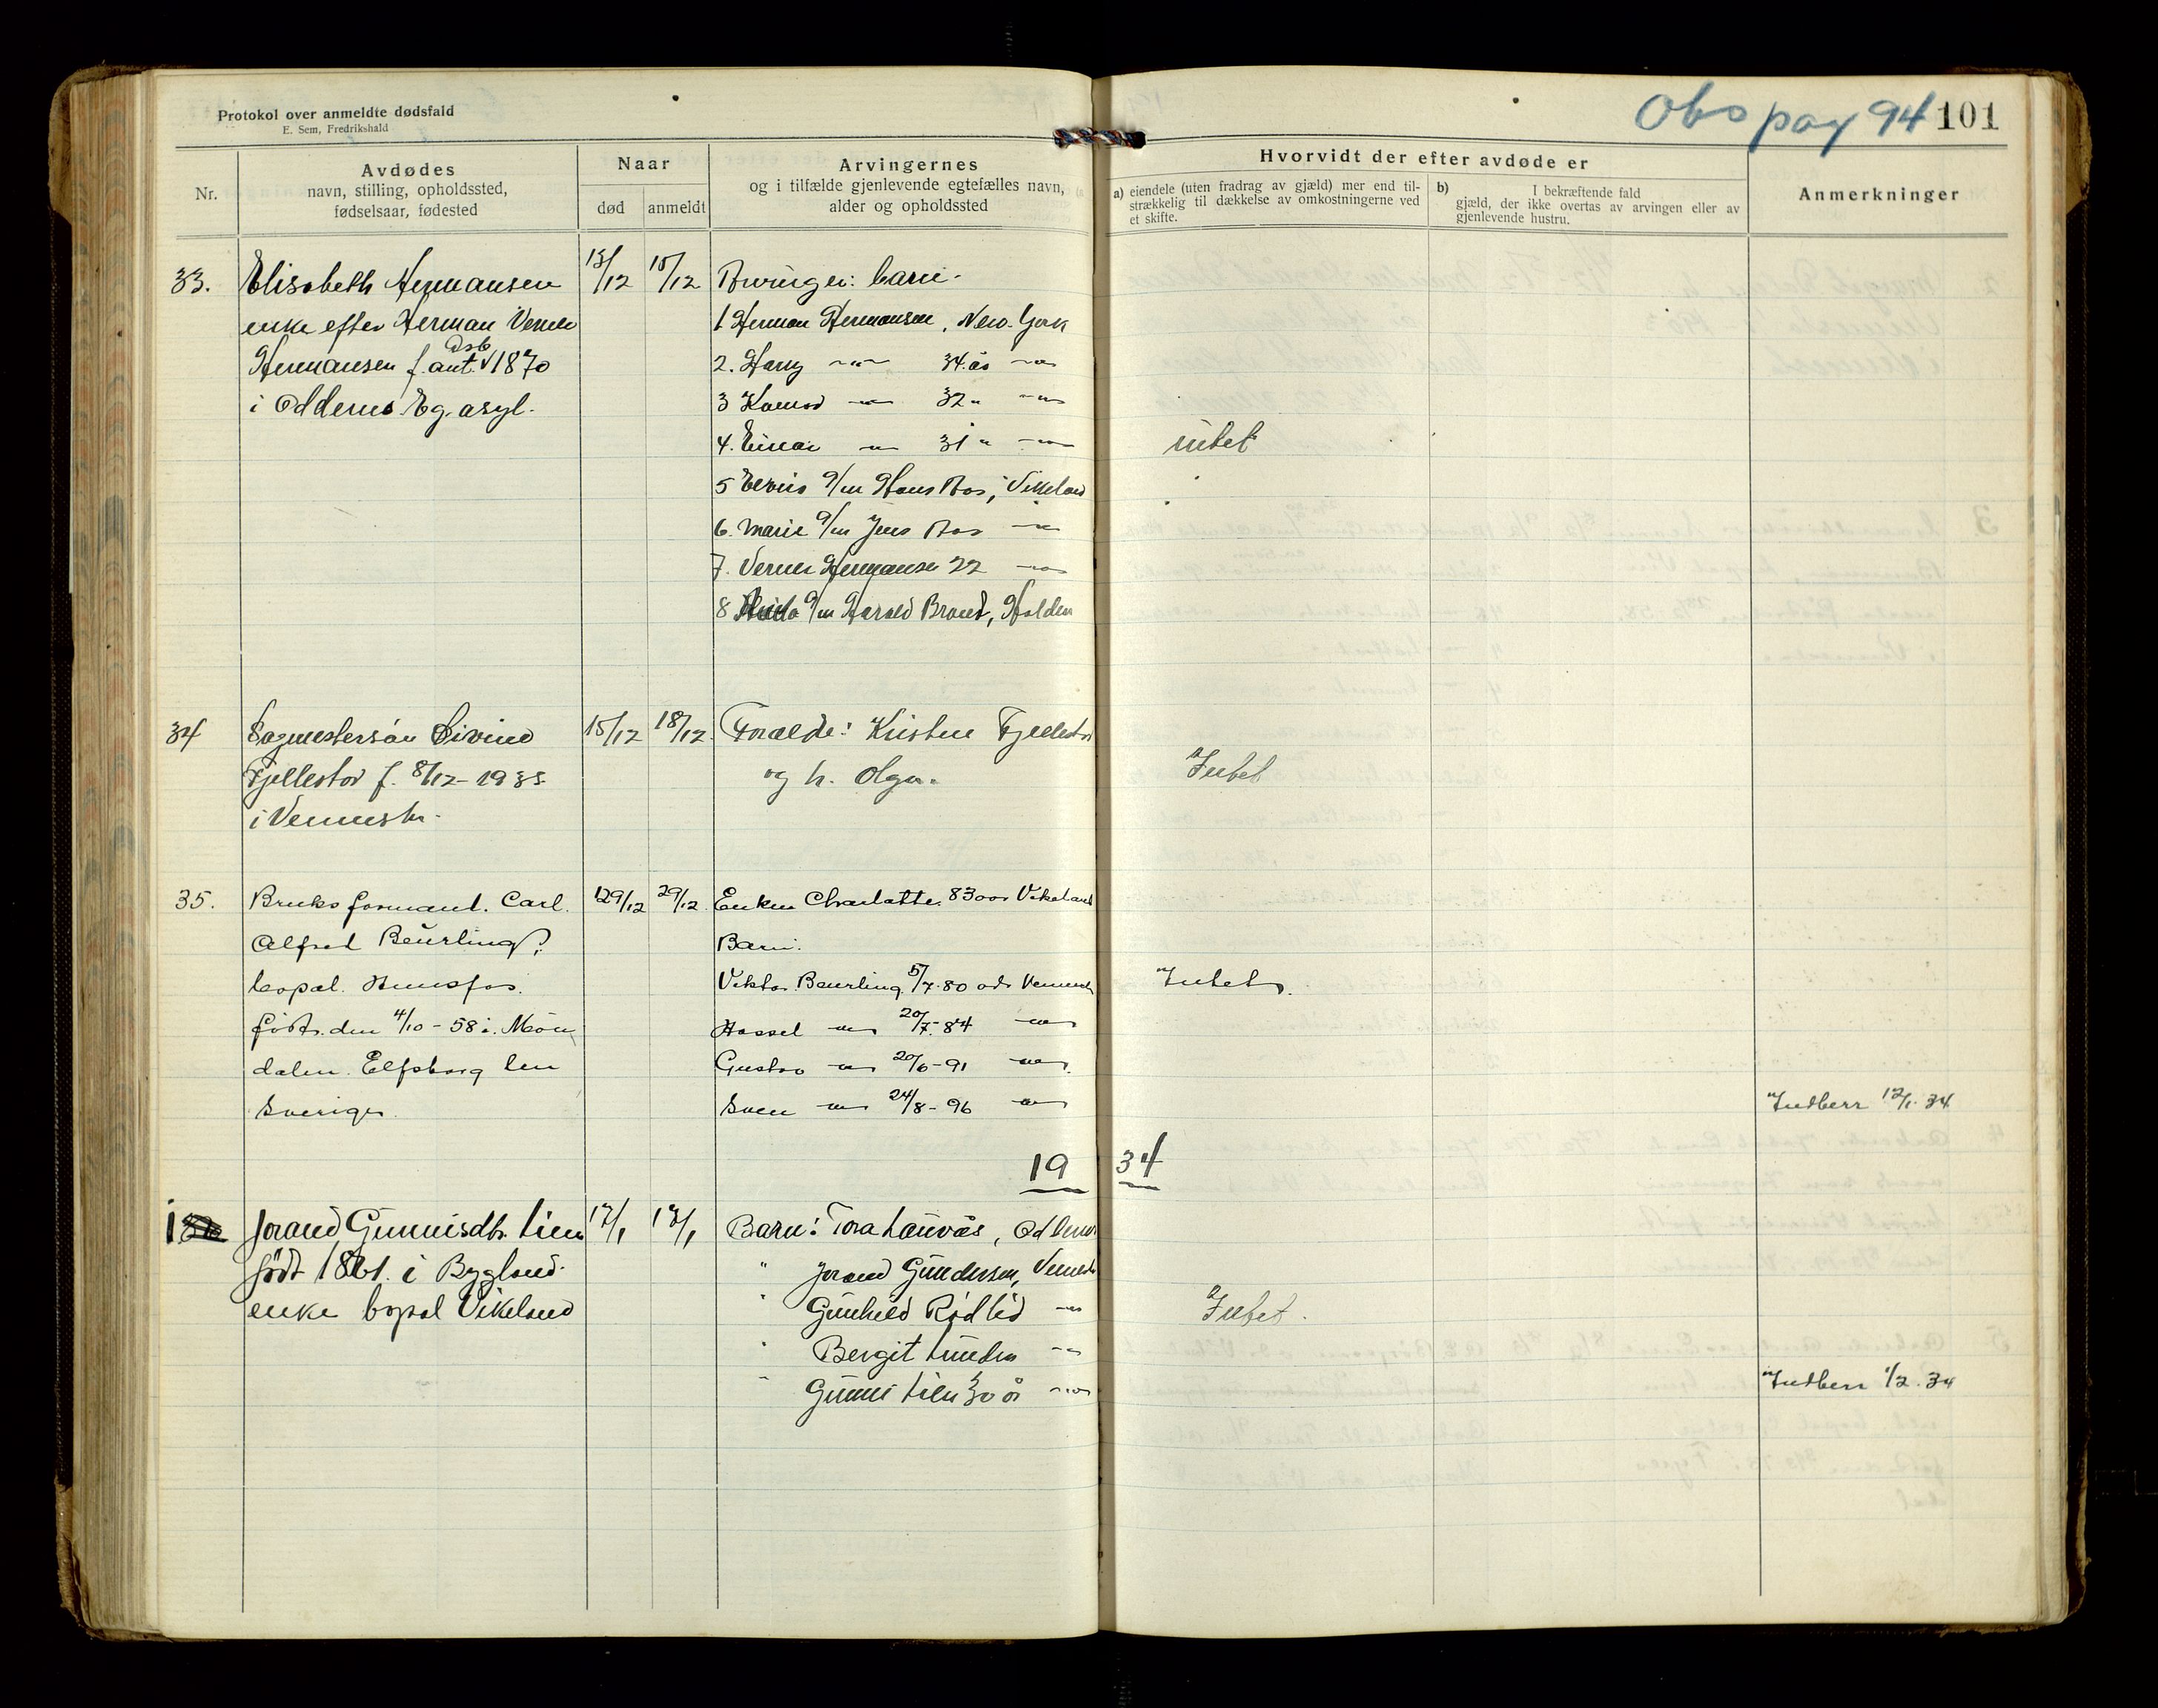 Protokol over anmeldte dødsfald
E. Sem, Fredrikshald
Obs pag 94 101
Nr.
Avdødes
navn, stilling, opholdssted,
fødselsaar, fødested
Naar
død anmeldt
Arvingernes
og i tilfælde gjenlevende egtefælles navn,
alder og opholdssted
Hvorvidt der efter avdøde er
a) eiendele (uten fradrag av gjæld) mer end til-
strækkelig til dækkelse av omkostningerne ved
et skifte.
b) I bekræftende fald
gjæld, der ikke overtas av arvingen eller av
gjenlevende hustru.
Anmerkninger
33. Elisabeth Hermansen 13/12 15/12 Arvinger: barn.
enke efter Herman 1 Herman Hermansen, New-York
Hermansen f. ant. 1870 2. Harry -"- 34 år -"-
i Oddernes Eg. asyl. 3 -"- 32 " -"-
4. Einar -"- 31 " -"- intet
5 g/m Hans Aas, Vikeland
6. Marie g/m Jens Aas -"-
7. Verner Hermansen 22 -"-
8 g/m Harald Brand, Halden
34 Sagmestersøn Eivind 15/12 18/12 Forældr: Kristen Fjellestad
Fjellestad f. 8/12-1933 og h. Olga. Intet
i Vennesla.
35. Bruksformand. Carl. 29/12 29/12. Enken Charlotte. 83 aar Vikeland
Alfred Beurling Barn:
bopæl. Hunsfos. Viktor Beurling 5/7-80 ads Vennesla Intet.
født. den 4/10-58 i. Møn Hassel -"- 20/7-84 -"-
dalen. Elfsborg len Gustav -"- 20/6-91 -"-
Sverige. Sven -"- 24/8-96 -"- Indberr 12/1-34
19 34
1 Jorand Gunnisdtr. Lien 17/1 17/1 Barn: Tora Lauvås, Oddernes
født 1861. i Bygland. " Jorand Gundersen, Vennesla
enke bopæl Vikeland " Gunhild Rødlid -"- Intet.
" Bergit Lunden -"-
" Gunni Lien 30 år -"- Indberr 1/2.34